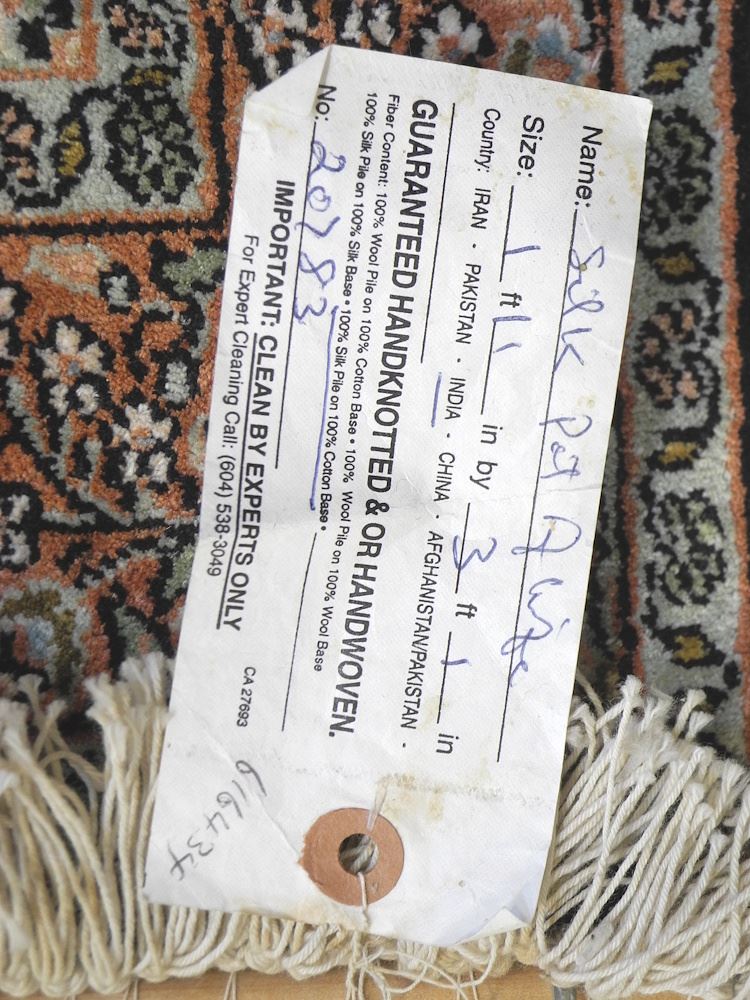 Name: Silk
Size: 1 ft 11 in by 3 ft 1 in
Country: IRAN · PAKISTAN · INDIA · CHINA · AFGHANISTAN/PAKISTAN ·
GUARANTEED HANDKNOTTED & OR HANDWOVEN.
Fiber Content: 100% Wool Pile on 100% Cotton Base • 100% Wool Pile on 100% Wool Base
100% Silk Pile on 100% Silk Base • 100% Silk Pile on 100% Cotton Base •
No: 20783
IMPORTANT: CLEAN BY EXPERTS ONLY
For Expert Cleaning Call: (604) 538-3049
CA 27693
616434